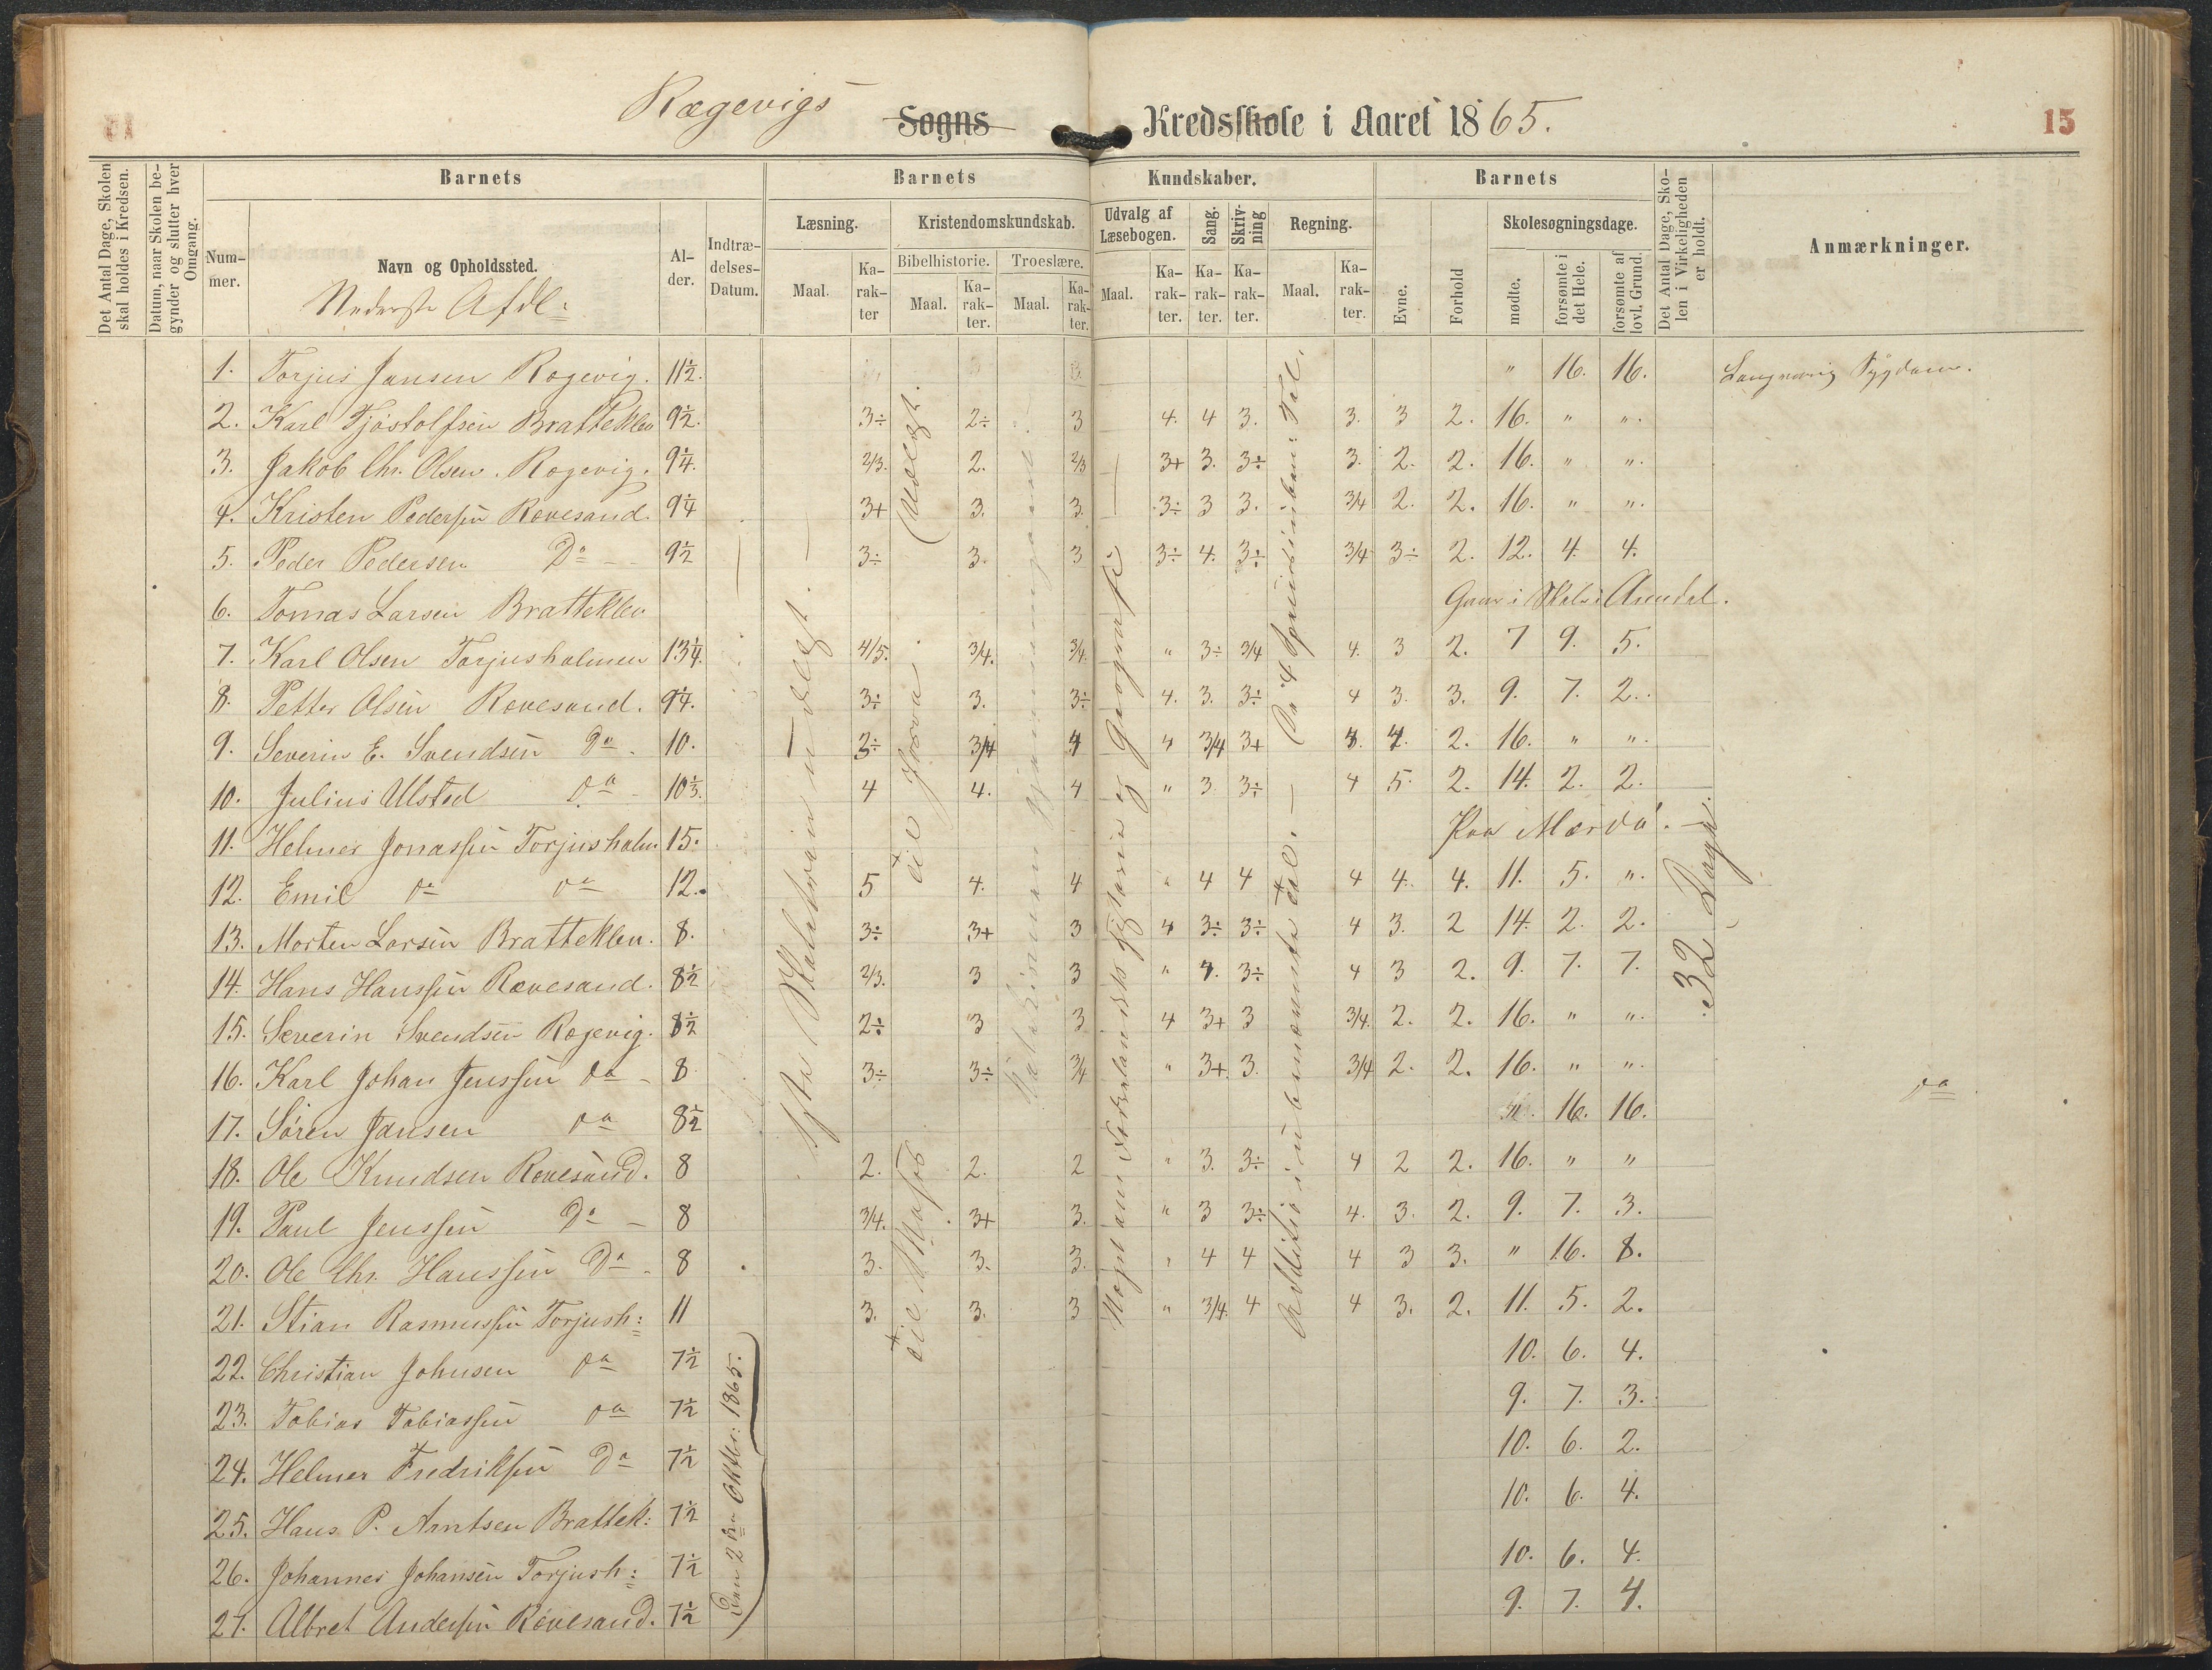 Rægevigs Sogns Kredsskole i Aaret 1865.
15
Det Antal Dage, Skolen skal holdes i Kredsen.
Datum, naar Skolen begynder og slutter hver Omgang.
Barnets
Barnets
Kundskaber.
Barnets
Det Antal Dage, Skolen i Virkeligheden er holdt.
Anmærkninger.
Nummer.
Navn og Opholdssted.
Nederste Afdl:
Alder.
Indtrædelses-Datum.
Læsning.
Kristendomskundskab.
Udvalg af Læsebogen.
Sang.
Skrivning
Regning.
Skolesøgningsdage.
Bibelhistorie.
Troeslære.
Maal.
Karakter
Maal.
Karakter.
Maal.
Karakter.
Maal.
Karakter.
Karakter.
Karakter.
Maal.
Karakter.
Evne.
Forhold
mødte.
forsømte i det Hele.
forsømte af lovl. Grund.
1. Torjus Jansen Rogevig. 11½. " 16. 16. Langvarig Sygdom.
2. Karl Tjöstolfsen Bratteklev 9½. 3÷ 2÷ 3 4. 4 3. 3. 3 2. 16. " ".
3. Jakob Chr. Olsen. Rogevig. 9¼. 2/3. 2. 2/3 3+ 3. 3÷ 3. 2. 2. 16. " ".
4. Kristen Pedersen Revesand. 9¼ 3+ 3. 3. 3÷ 3 3. 3/4 2. 2. 16. " ".
5. Peder Pedersen Do 9½ 3÷ 3. 3 3÷ 4. 3÷ 3/4 3÷ 2. 12. 4. 4.
6. Tomas Larsen Bratteklev Gaar i Skole i Arendal.
7. Karl Olsen Torjusholmen 13¼. 4/5. 3/4. 3/4. " 3÷ 3/4 4. 3 2. 7 9. 5.
8. Petter Olsen Revesand. 9¼. 3÷ 3. 3÷ 4. 3. 3÷ 4 3. 3. 9. 7. 2.
9. Severin E. Svendsen Do. 10. 3÷ 3/4 4 4 3/4 3+ 4. 4. 2. 16. " ".
10. Julius Ulsted do 10⅓. 4 4. 4 " 3 3÷ 4 5. 2. 14. 2. 2.
11. Helmer Jonassen Torjusholm 15. Paa Mærdö.
12. Emil do do 12. 5 4. 4 " 4 4 4 4. 4. 11. 5. ".
13. Morten Larsen Bratteklev. 8. 3÷ 3+ 3 4 3÷ 3÷ 4 3. 2 14. 2. 2.
14. Hans Hanssen Rævesand. 8½ 2/3. 3 3 " 4. 3÷ 4 3 2. 9. 7. 7.
15. Severin Svendsen Rogevig. 8½ 2÷ 3 3 4 3+ 3 3/4. 2. 2. 16. " ".
16. Karl Johan Jenssen do 8 3÷ 3÷ 3/4 " 3+ 3. 3/4 2. 2. 16. " ".
17. Sören Jansen do 8½ ". 16. 16. do
18. Ole Knudsen Revesand. 8 2. 2. 2 " 3. 3÷ 4 2 2. 16. " "
19. Paul Jenssen Do 8 3/4. 3+ 3. " 3 3÷ 4. 3. 2. 9. 7. 3.
20. Ole Chr. Hanssen Do 8 3. 3. 3. " 4 4 4 3 3. " 16. 8.
21. Stian Rasmussen Torjush: 11 3. 3. 3 " 3/4. 4 4 3. 2. 11. 5. 2.
22. Christian Johnsen do 7½ 10. 6. 4.
23. Tobias Tobiassen do 7½ 9. 7. 3.
24. Helmer Fredriksen Do 7½ 10. 6. 2.
25. Hans P. Arntsen Brattek: 7½ 10. 6. 4.
26. Johannes Johansen Torjush: 7½ 10. 6. 4.
27. Albret Andersen Revesand. 7½ 9. 7. 4.
Den 2den Oktbr: 1865.
32 Dage.